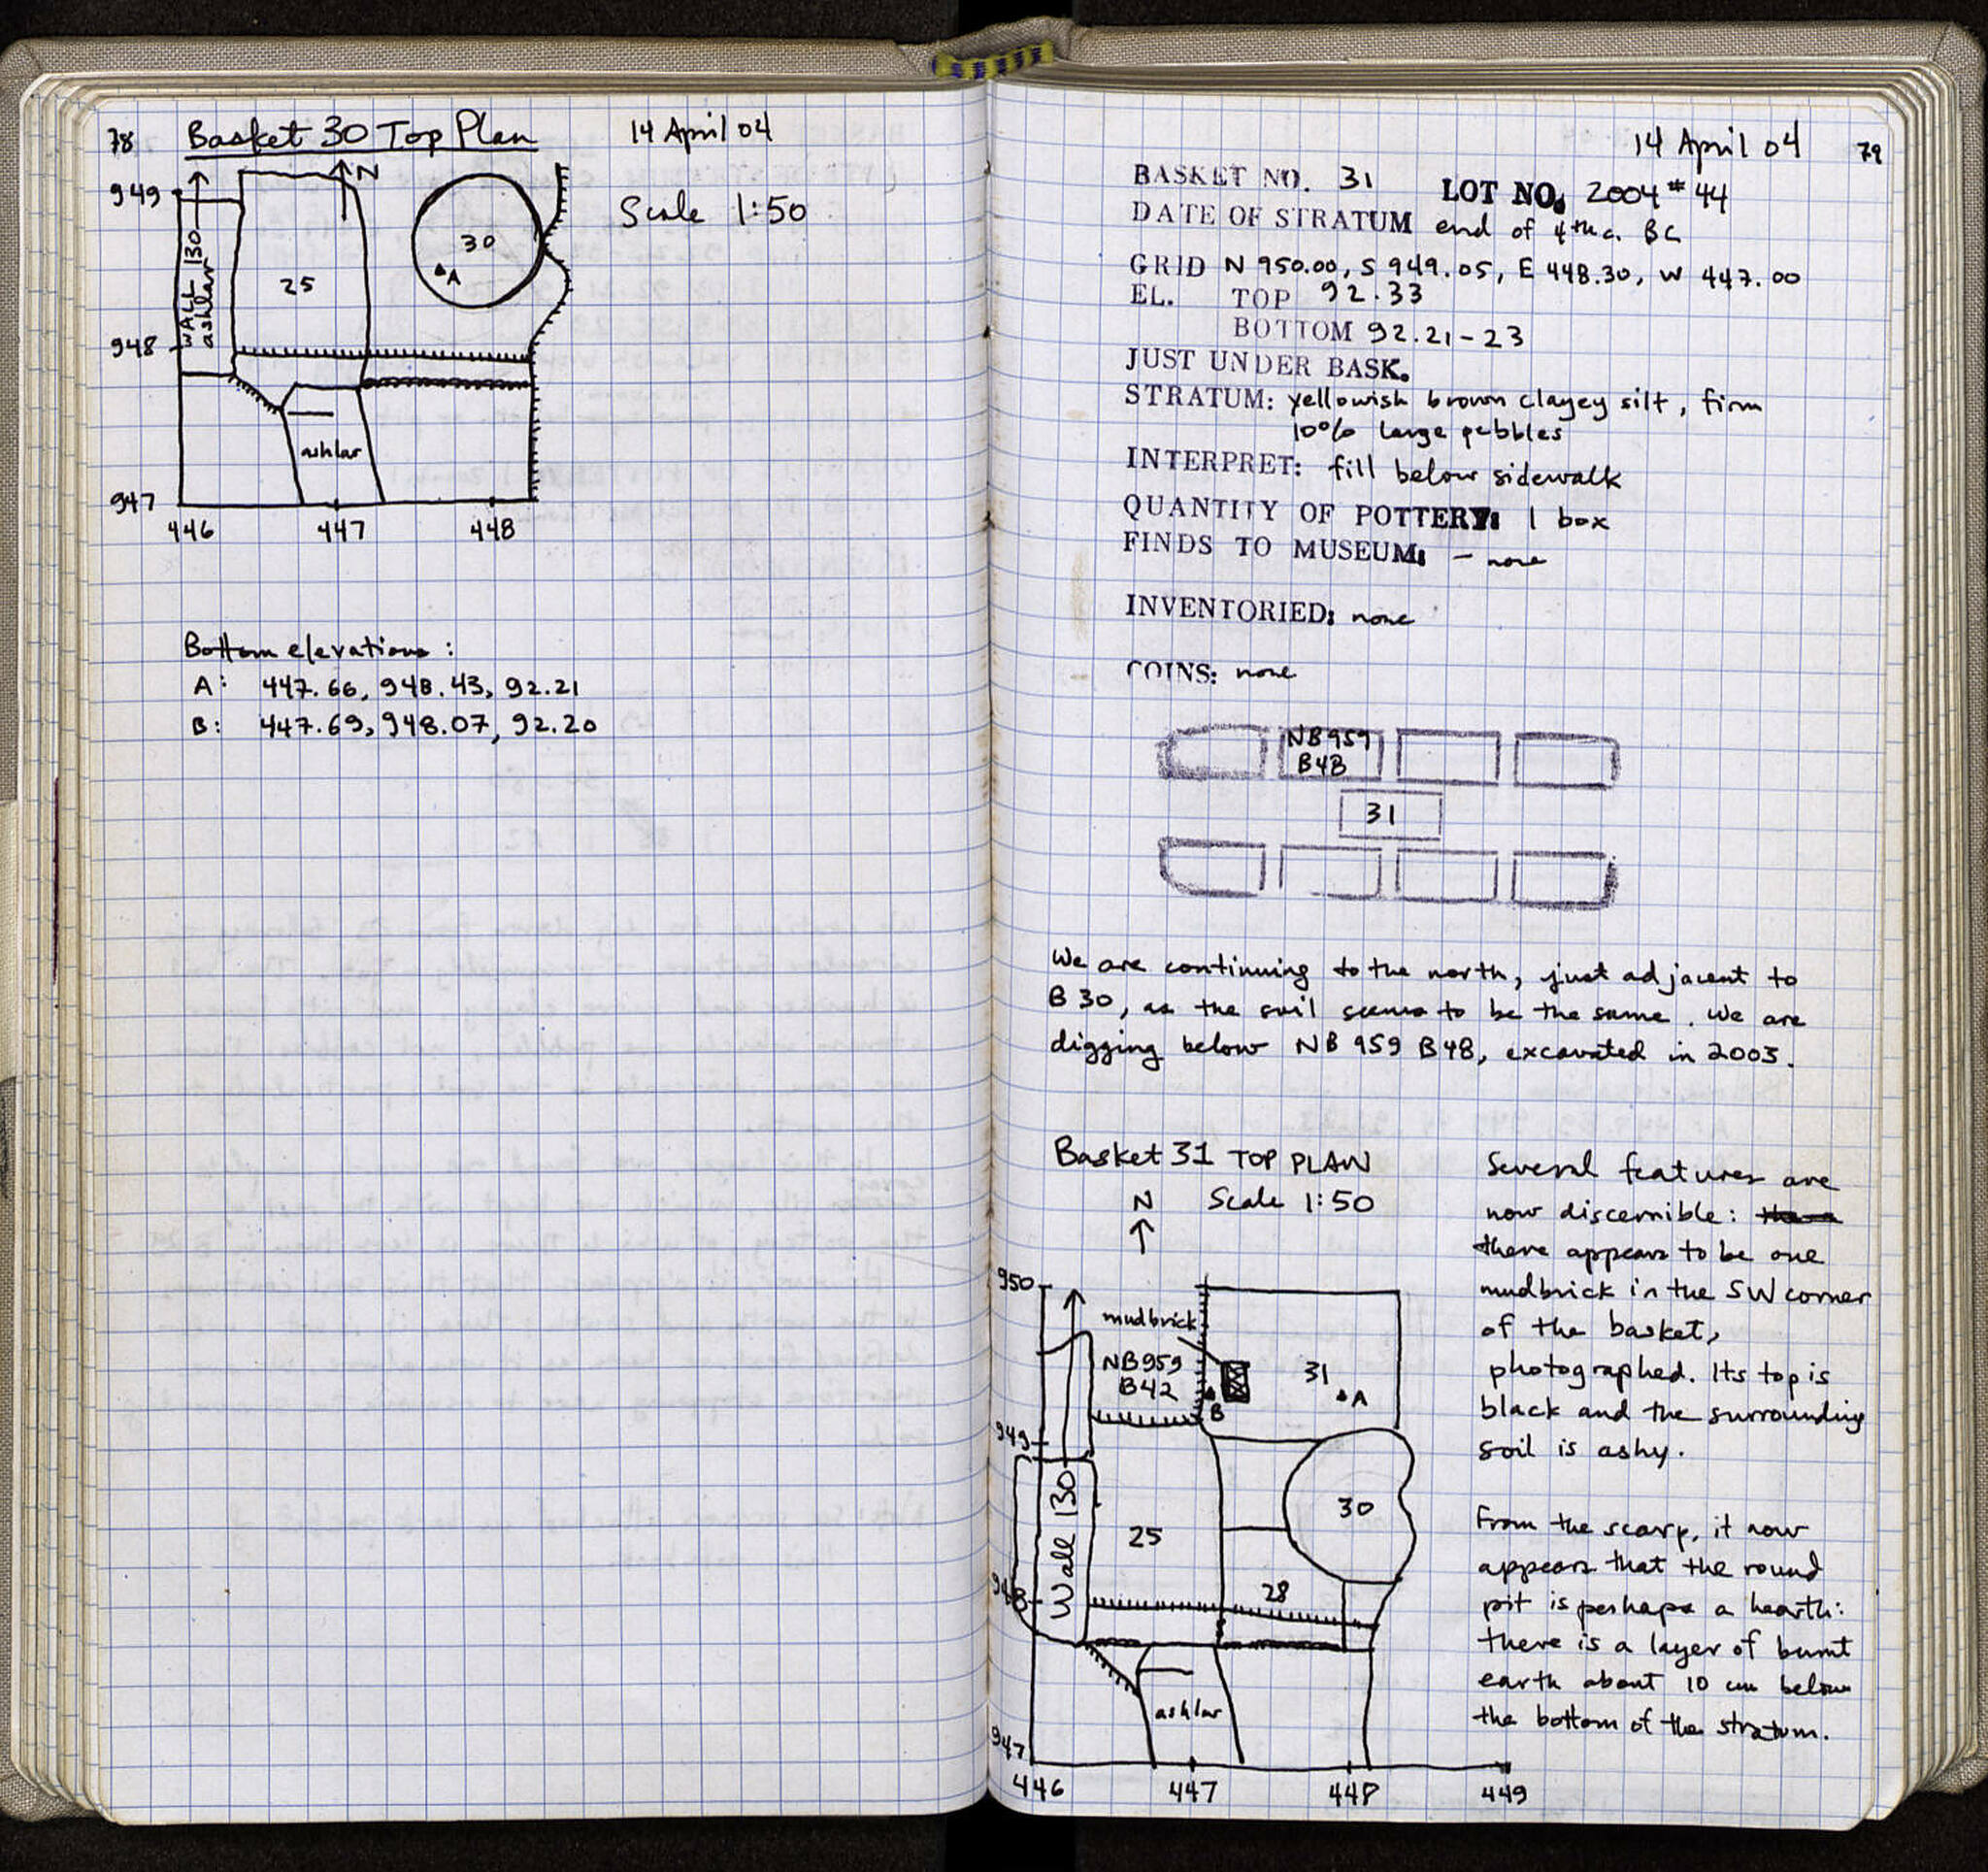 78
Basket 30 Top Plan
14 April 04
Scale 1:50
N
949
948
947
446 447 448
WALL 130
ashlar
25
30
A
ashlar
Bottom elevations:
A: 447.66, 948.43, 92.21
B: 447.69, 948.07, 92.20
14 April 04
79
BASKET NO. 31 LOT NO. 2004 # 44
DATE OF STRATUM end of 4th c. BC
GRID N 950.00, S 949.05, E 448.30, W 447.00
EL. TOP 92.33
BOTTOM 92.21-23
JUST UNDER BASK.
STRATUM: yellowish brown clayey silt, firm
10% large pebbles
INTERPRET: fill below sidewalk
QUANTITY OF POTTERY: 1 box
FINDS TO MUSEUM: - none
INVENTORIED: none
COINS: none
NB959
B48
31
We are continuing to the north, just adjacent to
B 30, as the soil seems to be the same. We are
digging below NB 959 B48, excavated in 2003.
Basket 31 TOP PLAN
N Scale 1:50
950
949
948
947
446 447 448 449
mudbrick
NB959
B42
31
A
B
Wall 130
25
30
28
ashlar
Several features are
now discernible:
there appears to be one
mudbrick in the SW corner
of the basket,
photographed. Its top is
black and the surrounding
soil is ashy.
From the scarp, it now
appears that the round
pit is perhaps a hearth:
there is a layer of burnt
earth about 10 cm below
the bottom of the stratum.